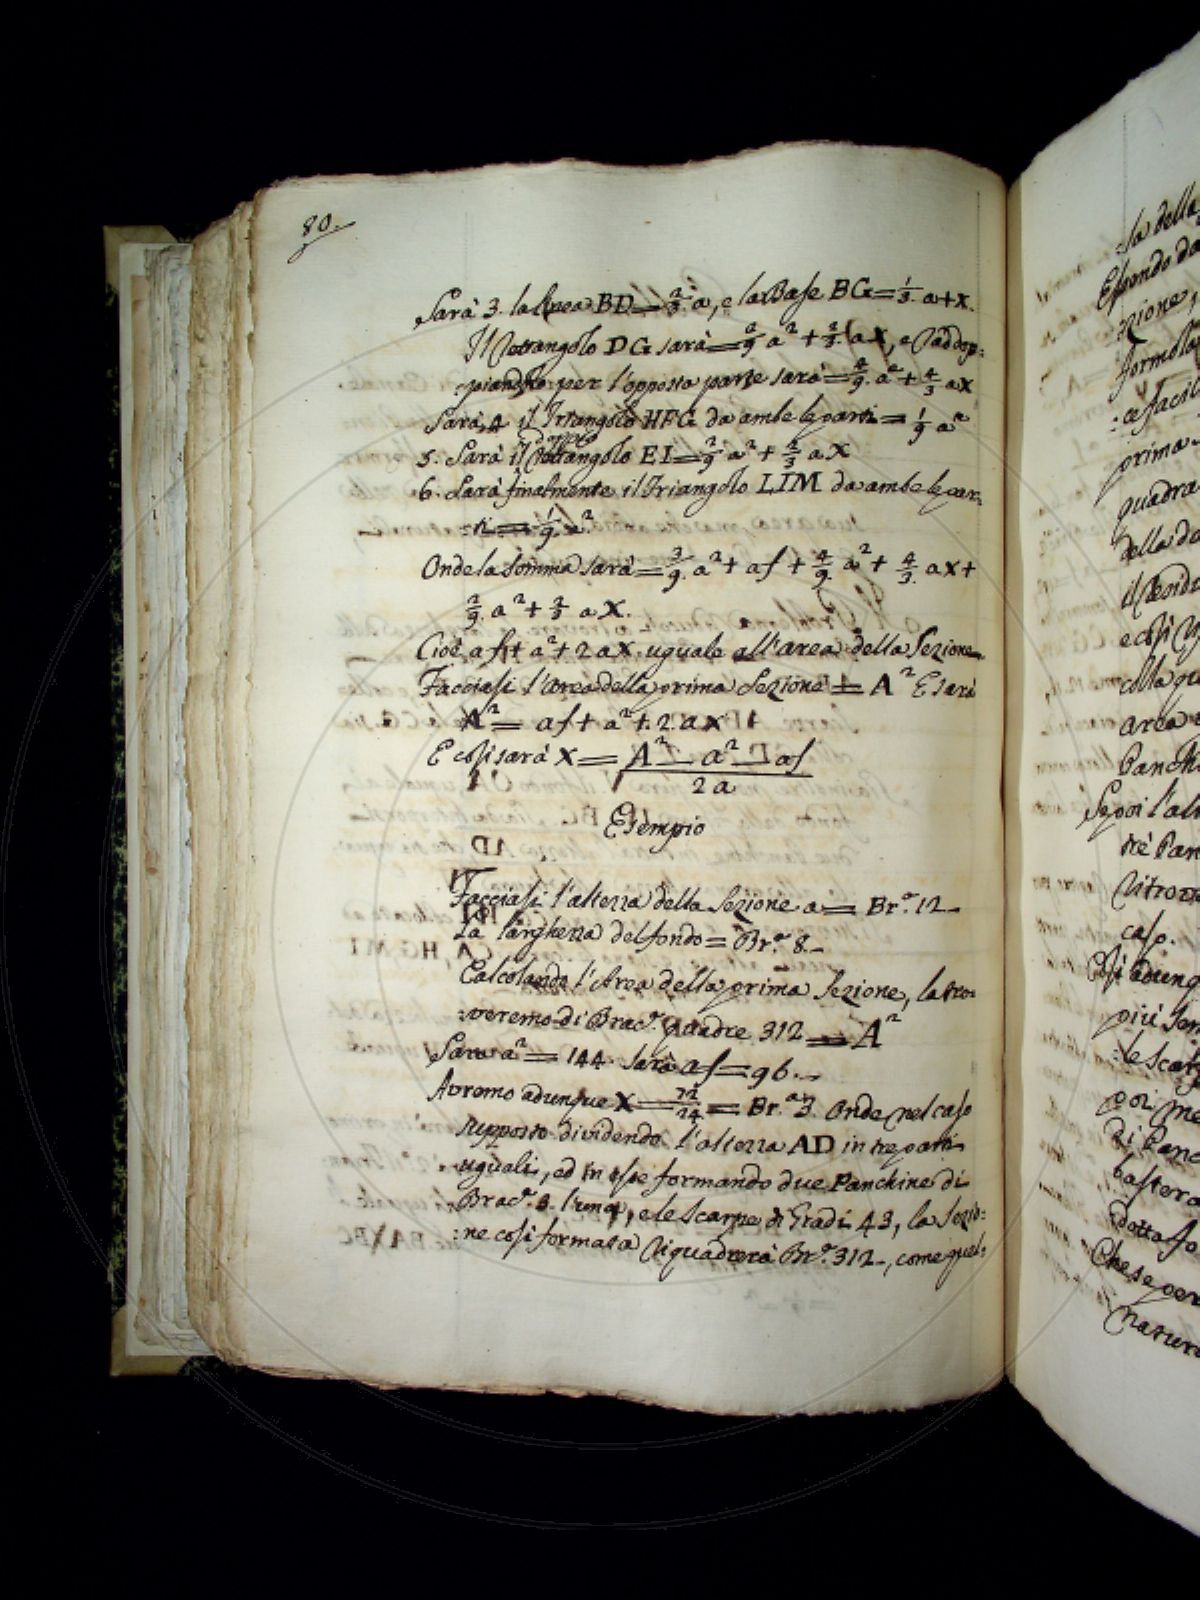 80.
Sarà 3. la linea BD = 2/3. a, e la Base BG = 1/3. a + x.
Il Rettangolo DG sarà = 2/9 a² + 2/3. a x, e raddop:
:piandolo per l'opposta parte sarà = 4/9. a² + 4/3 a x
Sarà 4. il Triangolo HFG da ambe le parti = 1/9 a²
doppio
5. Sarà il Rettangolo EI = 2/9 a² + 2/3 a. X
6. Sarà finalmente il Triangolo LIM da ambe le par:
:ti = 1/9. a².
Onde la Somma sarà = 3/9. a² + af + 4/9. a² + 4/3. a x +
2/9. a² + 2/3 a X.
Cioè af + a² + 2 a X. uguale all'area della Sezione
Facciasi l'Area della prima Sezione = A² E sarà
A² = af + a² + 2. a x
E così sarà X = A² - a² - af / 2 a
Esempio
Facciasi l'altezza della Sezione a = Br.ª 12 -
La larghezza del fondo = Br.ª 8. -
Calcolando l'Area della prima Sezione, la tro:
:veremo di Brac.ª quadre 312 = A²
Sarà a² = 144. Sarà af = 96. -
Avremo adunque X = 72/24 = Br.ª 3. Onde nel caso
supposto dividendo l'altezza AD in tre parti
uguali, ed in esse formando due Panchine di
Brac.ª 3. l'una, e le Scarpe di Gradi 43, la Sezio:
:ne così formata riquadrerà Br.ª 312 -, come quel:
:la della
Essendo da
:zione,
formola
:ce facil
prima
quadra
della da
colla qu
area
Panch
Se poi l'al
trè Pan
ritrova
caso.
Così adunq
più sem
:le Scarp
poi me
di Panc
basterà
dotta fo
Che se per
natura